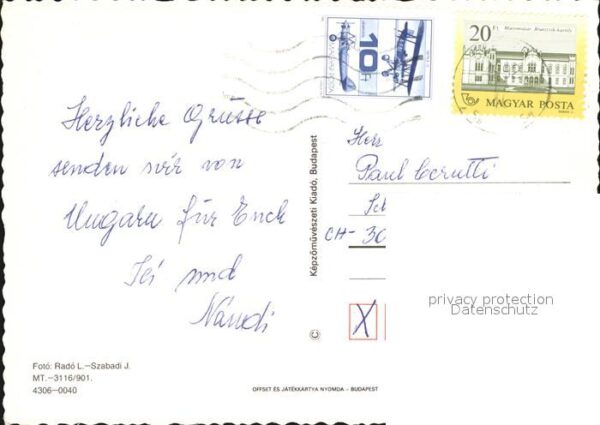 Herzliche Grüsse
senden wir von
Ungarn für Euch
und
Nándi
Foto: Radó L.–Szabadi J.
MT.–3116/901.
4306–0040
Képzőművészeti Kiadó, Budapest
©
OFFSET ÉS JÁTÉKKÁRTYA NYOMDA – BUDAPEST
10
20 Ft
MAGYAR POSTA
Herr
Paul Cerutti
CH- 30
X
privacy protection
Datenschutz